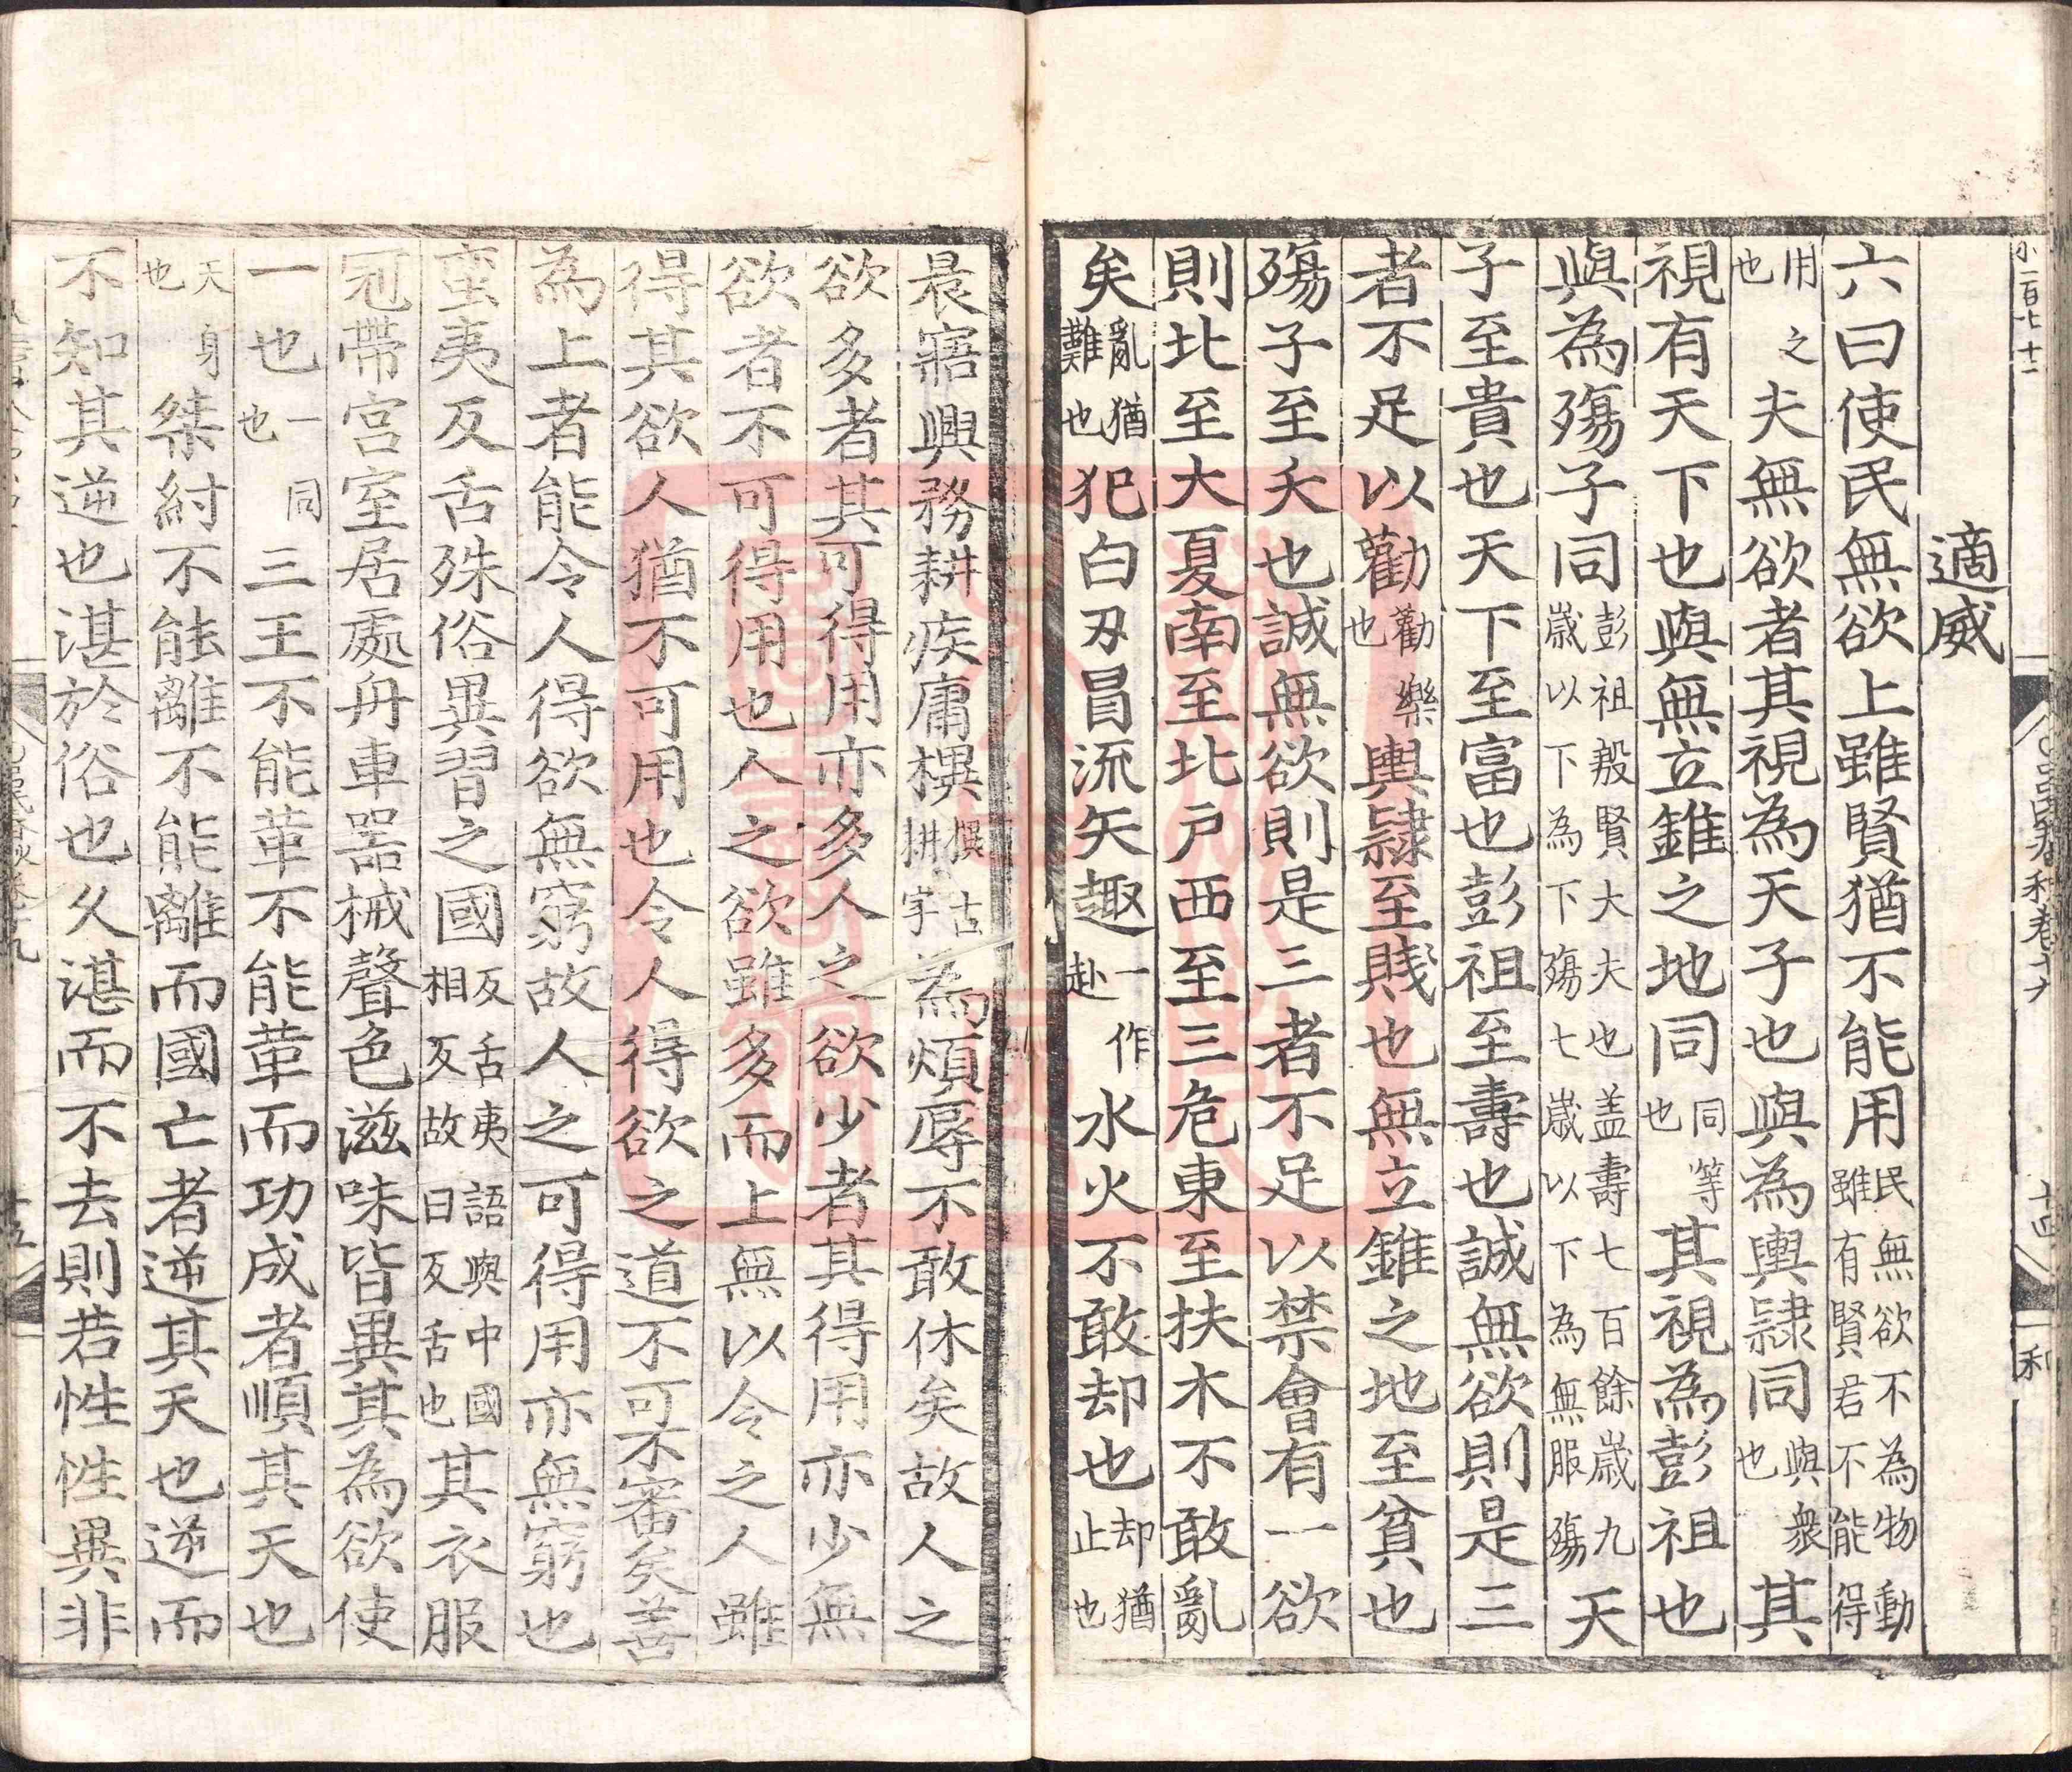 適威
六曰使民無欲上雖賢猶不能用民無欲不為物動雖有賢君不能得
用之也夫無欲者其視為天子也與為輿隸同與衆也其
視有天下也與無立錐之地同同等也其視為彭祖也
與為殤子同彭祖殷賢大夫也盖壽七百餘歲九歲以下為下殤七歲以下為無服殤天
子至貴也天下至富也彭祖至壽也誠無欲則是三
者不足以勸勸樂也輿隸至賤也無立錐之地至貧也
殤子至夭也誠無欲則是三者不足以禁會有一欲
則北至大夏南至北戶西至三危東至扶木不敢亂
矣亂猶難也犯白刃冒流矢趣一作赴水火不敢却也却猶止也
晨寤興務耕疾庸樸撰古耕字為煩辱不敢休矣故人之
欲多者其可得用亦多人之欲少者其得用亦少無
欲者不可得用也人之欲雖多而上無以令之人雖
得其欲人猶不可用也令人得欲之道不可不審矣善
為上者能令人得欲無窮故人之可得用亦無窮也
蛮夷反舌殊俗異習之國反舌夷語與中國相反故曰反舌也其衣服
冠帶宮室居處舟車器械聲色滋味皆異其為欲使
一也一同也三王不能革不能革而功成者順其天也
天身也桀紂不能離不能離而國亡者逆其天也逆而
不知其逆也湛於俗也久湛而不去則若性性異非